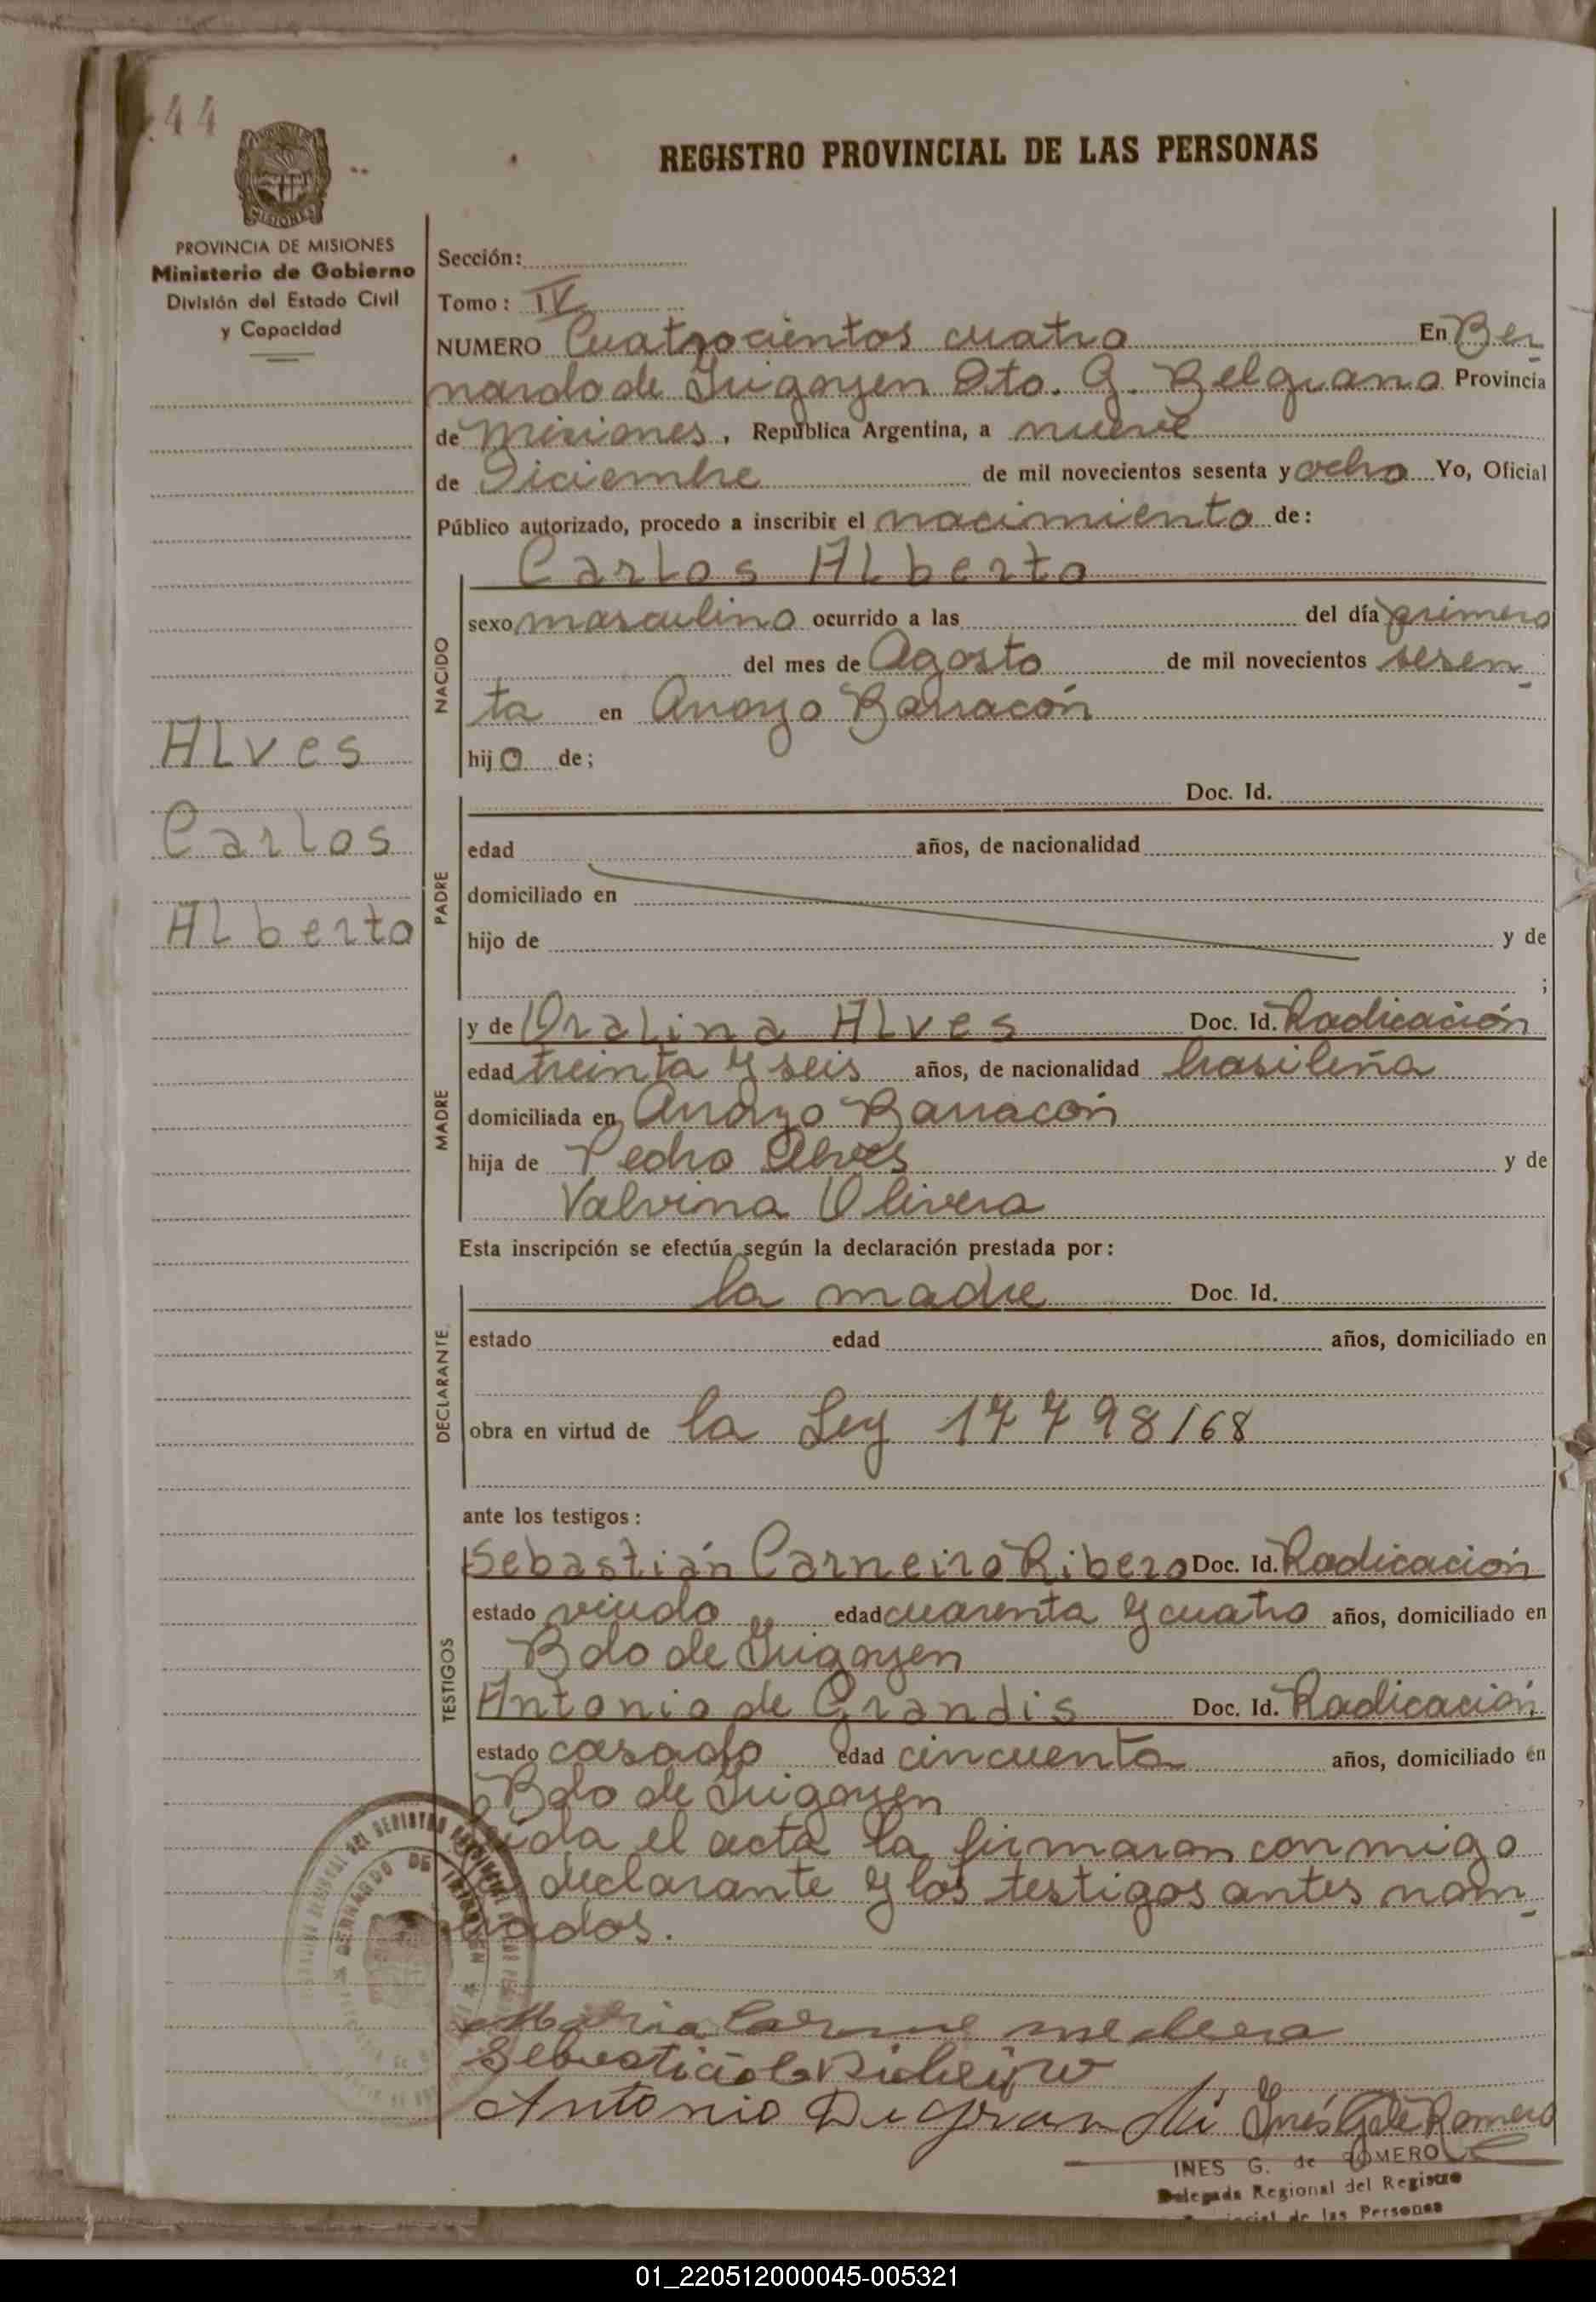 44
REGISTRO PROVINCIAL DE LAS PERSONAS
MISIONES
PROVINCIA DE MISIONES
Ministerio de Gobierno
División del Estado Civil
y Capacidad
Sección:
Tomo: IV
NUMERO Cuatrocientos cuatro En Ber
nardo de Irigoyen Dto. G. Belgrano Provincia
de Misiones, República Argentina, a nueve
de Diciembre de mil novecientos sesenta y ocho Yo, Oficial
Público autorizado, procedo a inscribir el nacimiento de:
Carlos Alberto
NACIDO
sexo masculino ocurrido a las del día primero
del mes de Agosto de mil novecientos sesen
ta en Arroyo Barracón
hijo de;
Alves
Carlos
Alberto
PADRE
Doc. Id.
edad años, de nacionalidad
domiciliado en
hijo de y de
;
MADRE
y de Oralina Alves Doc. Id. Radicación
edad treinta y seis años, de nacionalidad brasileña
domiciliada en Arroyo Barracón
hija de Pedro Alves y de
Valvina Olivera
Esta inscripción se efectúa según la declaración prestada por:
DECLARANTE
la madre Doc. Id.
estado edad años, domiciliado en
obra en virtud de la Ley 17798/68
ante los testigos:
TESTIGOS
Sebastián Carneiro Ribero Doc. Id. Radicación
estado viudo edad cuarenta y cuatro años, domiciliado en
Bdo de Irigoyen
Antonio de Grandis Doc. Id. Radicación
estado casado edad cincuenta años, domiciliado en
Bdo de Irigoyen
el acta la firmaron conmigo
declarante y los testigos antes nom
brados.
BERNARDO DE IRIGOYEN
Maria
Antonio De Grandi Inés G de Romero
INES G. de ROMERO
Delegada Regional del Registro
de las Personas
01_220512000045-005321